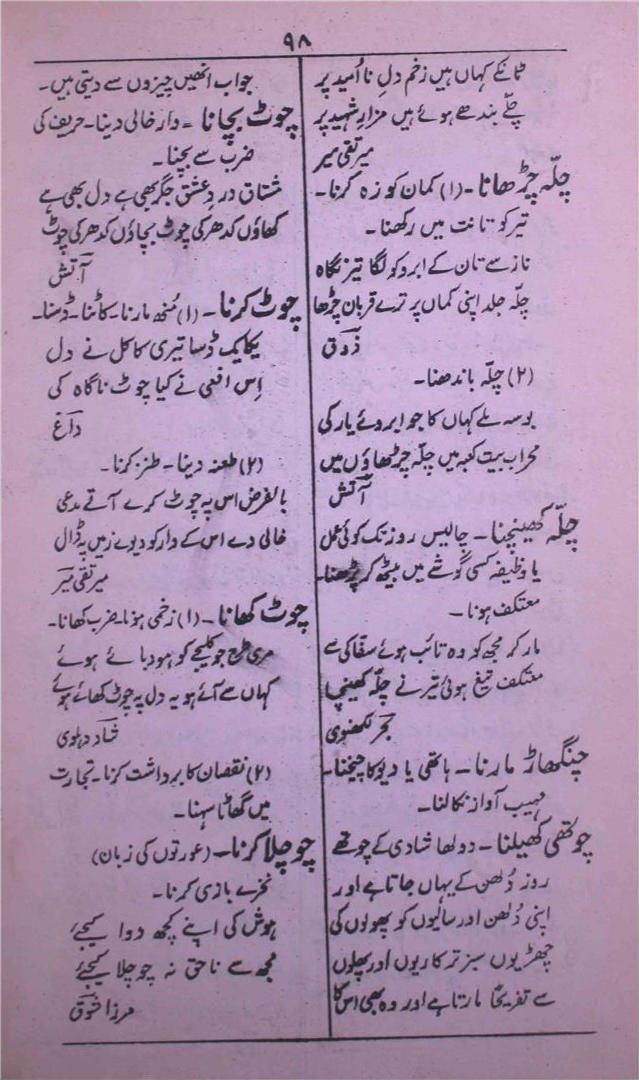 ۹۸
ٹانکے کہاں ہیں زخم دلِ نا اُمید پر
چلّے بندھے ہوئے ہیں مزارِ شہید پر
میر تقی میر
چلّہ چڑھانا۔ (۱) کمان کو زہ کرنا۔
تیر کو تانت میں رکھنا۔
ناز سے تان کے ابرو کو لگا تیز نگاہ
چلّہ جلد اپنی کماں پر ترے قربان چڑھا
ذوق
(۲) چلّہ باندھنا۔
بوسہ ملے کہاں کا جو ابروئے یار کی
محراب بیت کعبہ میں چلّہ چڑھاؤں میں
آتش
چلّہ کھینچنا۔ چالیس روز تک کوئی عمل
یا وظیفہ کسی گوشے میں بیٹھ کر پڑھنا۔
معتکف ہونا۔
مار کر مجھ کو وہ تائب ہوئے سفّاکی سے
معتکف تیغ ہوئی تیر نے چلّہ کھینچا
بحر لکھنوی
چنگھاڑ مارنا۔ ہاتھی یا دیو کا چیخنا۔
مہیب آواز نکالنا۔
چوتھی کھیلنا۔ دولھا شادی کے چوتھے
روز دُلھن کے یہاں جاتا ہے اور
اپنی دُلھن اور سالیوں کو پھولوں کی
چھڑیوں سبز ترکاریوں اور پھلوں
سے تفریحاً مارتا ہے اور وہ بھی اس کا
جواب انھیں چیزوں سے دیتی ہیں۔
چوٹ بچانا = وار خالی دینا۔ حریف کی
ضرب سے بچنا۔
مشتاق دردِ عشق جگر بھی ہے دل بھی ہے
کھاؤں کدھر کی چوٹ بچاؤں کدھر کی چوٹ
آتش
چوٹ کرنا۔ (۱) مُنھ مارنا۔ کاٹنا۔ ڈسنا۔
یکایک ڈسا تیری کاکل نے دل
اِس افعی نے کیا چوٹ ناگاہ کی
داغ
(۲) طعنہ دینا۔ طنز کرنا۔
بالفرض اس پہ چوٹ کرے آتے مدعی
خالی دے اس کے وار کو دیوے زمیں پہ ڈال
میر تقی میر
چوٹ کھانا۔ (۱) زخمی ہونا۔ ضرب کھانا۔
مری طرح جو کلیجے کو ہو دبائے ہوئے
کہاں سے آئے ہو یہ دل پہ چوٹ کھائے ہوئے
شاد دہلوی
(۲) نقصان کا برداشت کرنا۔ تجارت
میں گھاٹا سہنا۔
چوچلا کرنا۔ (عورتوں کی زبان)
نخرے بازی کرنا۔
ہوش کی اپنے کچھ دوا کیجے
مجھ سے ناحق نہ چوچلا کیجے
مرزا شوق